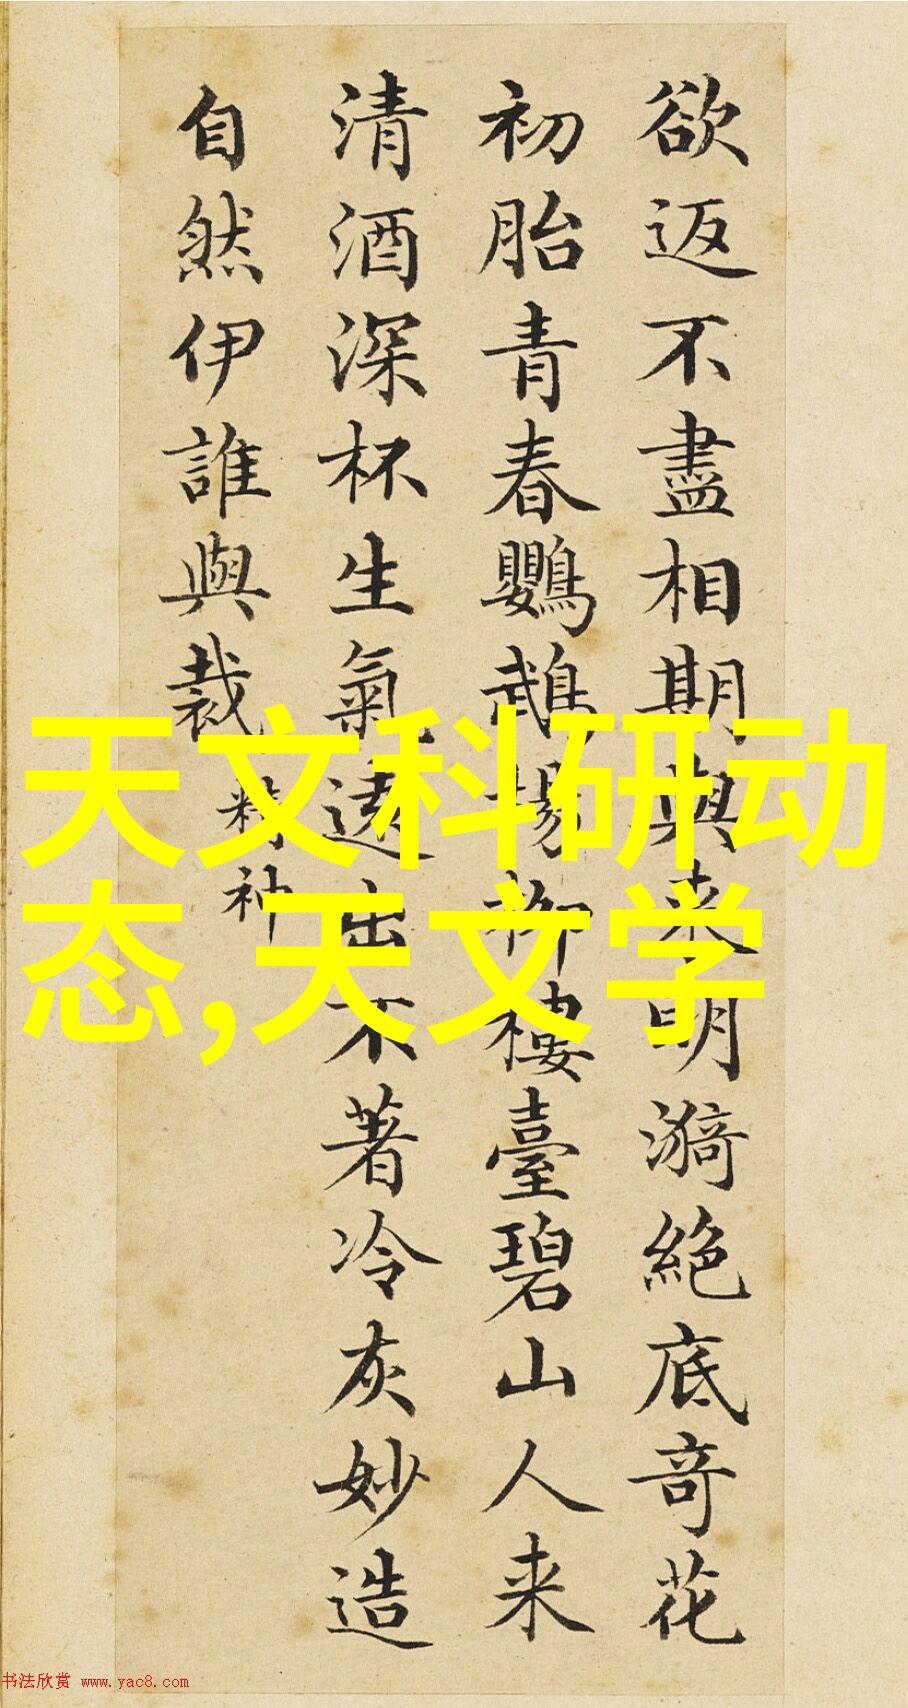 欲返不盡相期與来明漪絶底竒花
初胎青春鸚鵡楊柳樓臺碧山人来
清酒深杯生氣遠出不著冷灰妙造
自然伊誰與裁
精神
天文科研动
态,天文学
书法欣赏 www.yac8.com